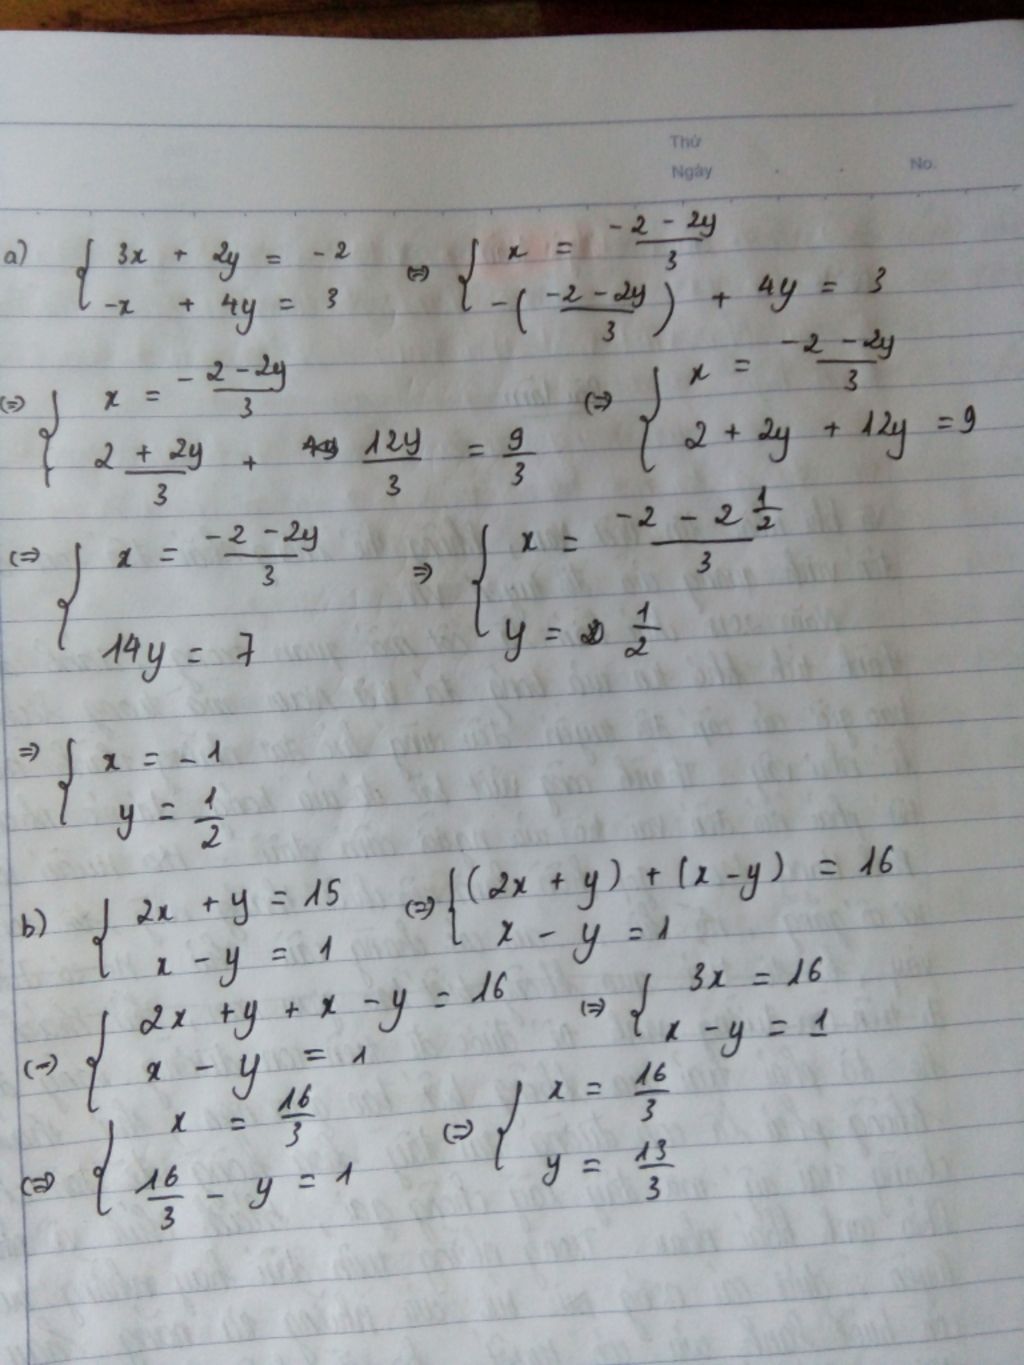 Thứ
Ngày No.
a) { 3x + 2y = -2 ; -x + 4y = 3 <=> { x = (-2 - 2y)/3 ; -((-2 - 2y)/3) + 4y = 3
(=> { x = (-2 - 2y)/3 ; (2 + 2y)/3 + 12y/3 = 9/3 (=> { x = (-2 - 2y)/3 ; 2 + 2y + 12y = 9
(=> { x = (-2 - 2y)/3 ; 14y = 7 => { x = (-2 - 2 1/2)/3 ; y = 1/2
=> { x = -1 ; y = 1/2
b) { 2x + y = 15 ; x - y = 1 (=> { (2x + y) + (x - y) = 16 ; x - y = 1
(=) { 2x + y + x - y = 16 ; x - y = 1 (=> { 3x = 16 ; x - y = 1
(=> { x = 16/3 ; 16/3 - y = 1 (=> { x = 16/3 ; y = 13/3